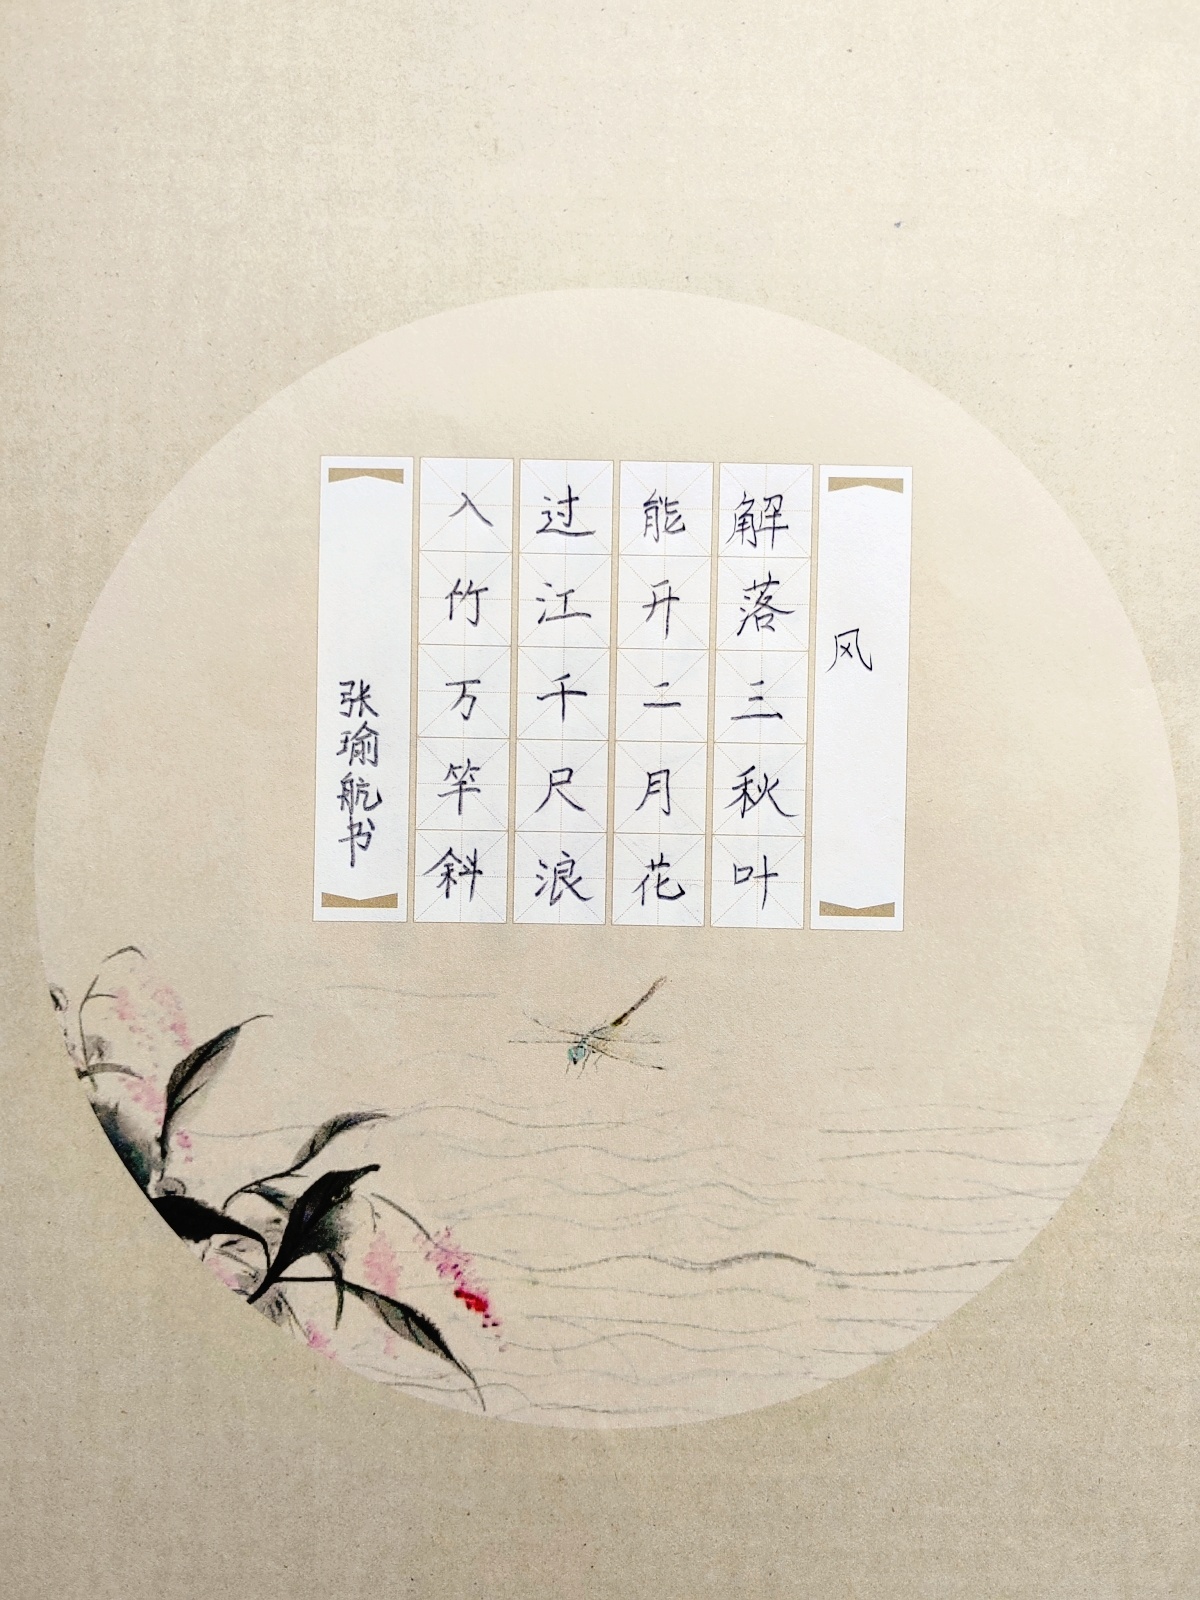 风
解落三秋叶
能开二月花
过江千尺浪
入竹万竿斜
张瑜航书